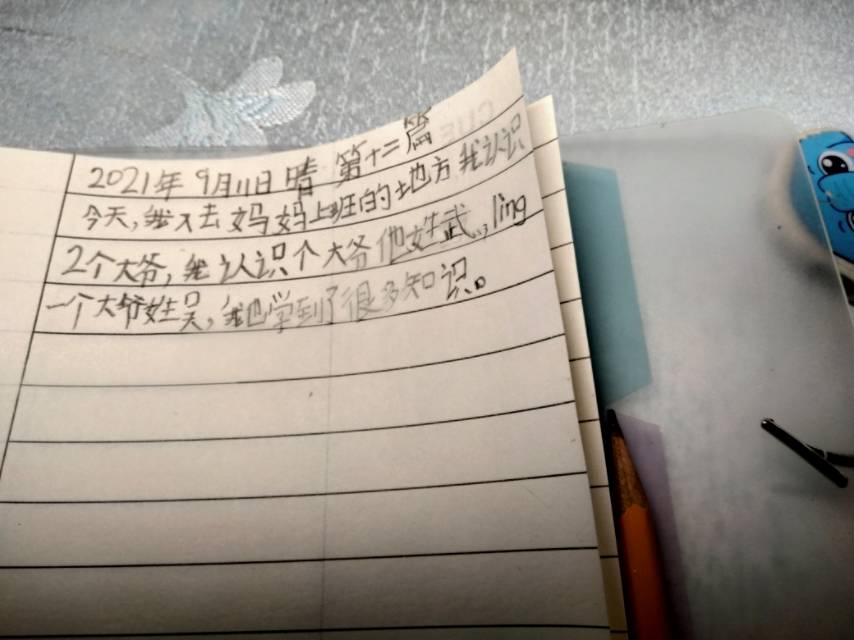 2021年9月11日 晴 第十二篇
今天,我又去妈妈上班的地方我认识
2个大爷,我认识个大爷他姓武,ling
一个大爷姓吴,我也学到了很多知识。